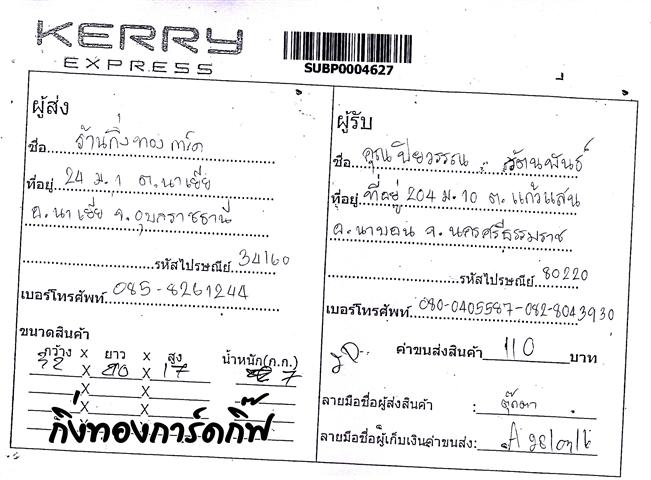 KERRY
EXPRESS
SUBP0004627
ผู้ส่ง
ชื่อ ร้านกิ่งทอง การ์ด
ที่อยู่ 24 ม.1 ต.นาเยีย
อ.นาเยีย จ.อุบลราชธานี
รหัสไปรษณีย์ 34160
เบอร์โทรศัพท์ 085-8261244
ขนาดสินค้า
กว้าง x ยาว x สูง น้ำหนัก(ก.ก.)
x x 17 7
x x
x x
กิ่งทองการ์ดกิ๊ฟ
ผู้รับ
ชื่อ คุณปิยวรรณ รัตนพันธ์
ที่อยู่ ที่อยู่ 204 ม.10 ต.แก้วแสน
อ.นาบอน จ.นครศรีธรรมราช
รหัสไปรษณีย์ 80220
เบอร์โทรศัพท์ 080-0405587-082-8043930
ค่าขนส่งสินค้า 110 บาท
ลายมือชื่อผู้ส่งสินค้า : ตุ๊กตา
ลายมือชื่อผู้เก็บเงินค่าขนส่ง: